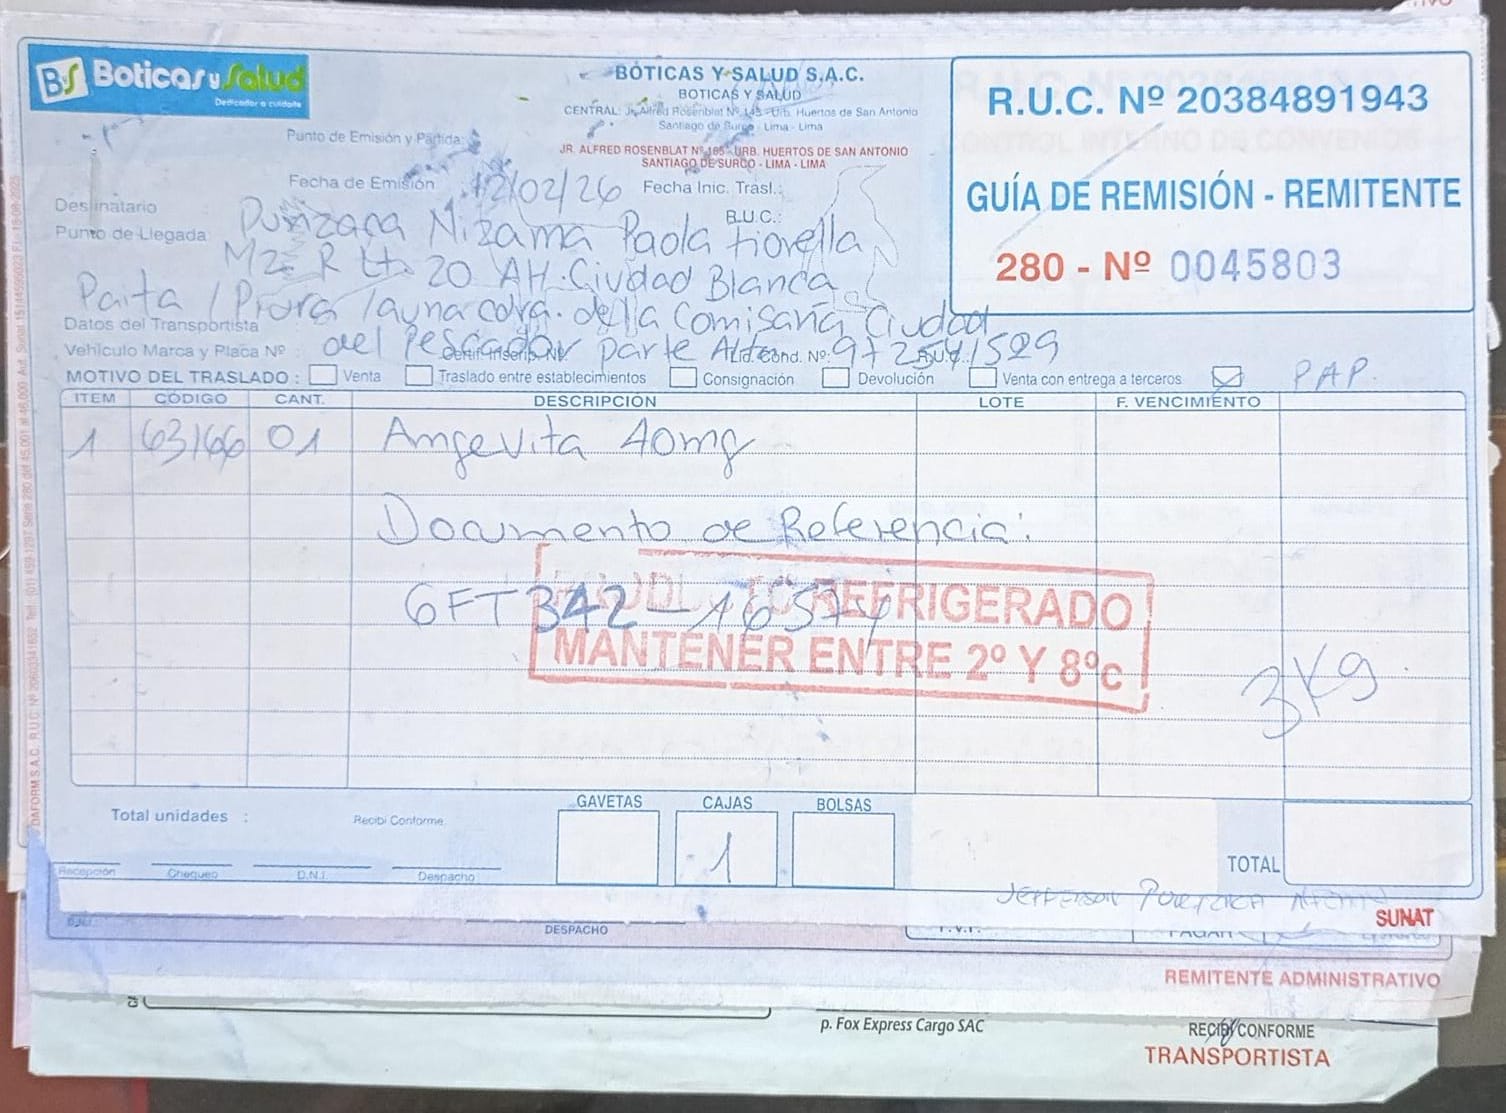 BS Boticas y Salud
Dedicados a cuidarte
BOTICAS Y SALUD S.A.C.
BOTICAS Y SALUD
CENTRAL: Jr. Alfred Rosenblat Nº 165 - Urb. Huertos de San Antonio
Santiago de Surco - Lima - Lima
Punto de Emisión y Partida:
JR. ALFRED ROSENBLAT Nº 165 - URB. HUERTOS DE SAN ANTONIO
SANTIAGO DE SURCO - LIMA - LIMA
R.U.C. Nº 20384891943
GUÍA DE REMISIÓN - REMITENTE
280 - Nº 0045803
Fecha de Emisión 12/02/26 Fecha Inic. Trasl.:
Destinatario Nizama Paola Fiorella R.U.C.:
Punto de Llegada: Mz R Lt. 20 AH. Ciudad Blanca
Paita / Piura / a una cdra. de la Comisaria Ciudad
Datos del Transportista
del Pescador parte Alta 972541529
Vehículo Marca y Placa Nº : Certif. Inscrip. Nº. Lid. Cond. Nº: R.U.C.:
MOTIVO DEL TRASLADO : Venta Traslado entre establecimientos Consignación Devolución Venta con entrega a terceros PAP.
ITEM CÓDIGO CANT. DESCRIPCIÓN LOTE F. VENCIMIENTO
1 63166 01 Amgevita 40mg
Documento de Referencia:
6FT342-16574
PRODUCTO REFRIGERADO
MANTENER ENTRE 2º Y 8ºc
3Kg
Total unidades : Recibí Conforme
GAVETAS CAJAS BOLSAS
1
TOTAL
Recepción Chequeo D.N.I. Despacho
JEFFERSON
SUNAT
DESPACHO
REMITENTE ADMINISTRATIVO
p. Fox Express Cargo SAC
RECIBÍ CONFORME
TRANSPORTISTA